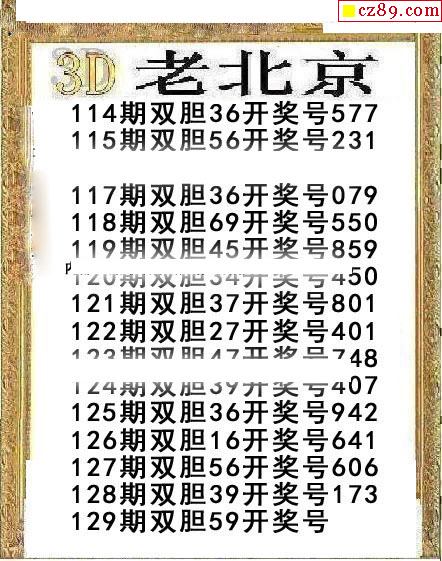 cz89.com
3D 老北京
114期双胆36开奖号577
115期双胆56开奖号231
117期双胆36开奖号079
118期双胆69开奖号550
119期双胆45开奖号859
120期双胆34开奖号450
121期双胆37开奖号801
122期双胆27开奖号401
123期双胆47开奖号748
124期双胆39开奖号407
125期双胆36开奖号942
126期双胆16开奖号641
127期双胆56开奖号606
128期双胆39开奖号173
129期双胆59开奖号